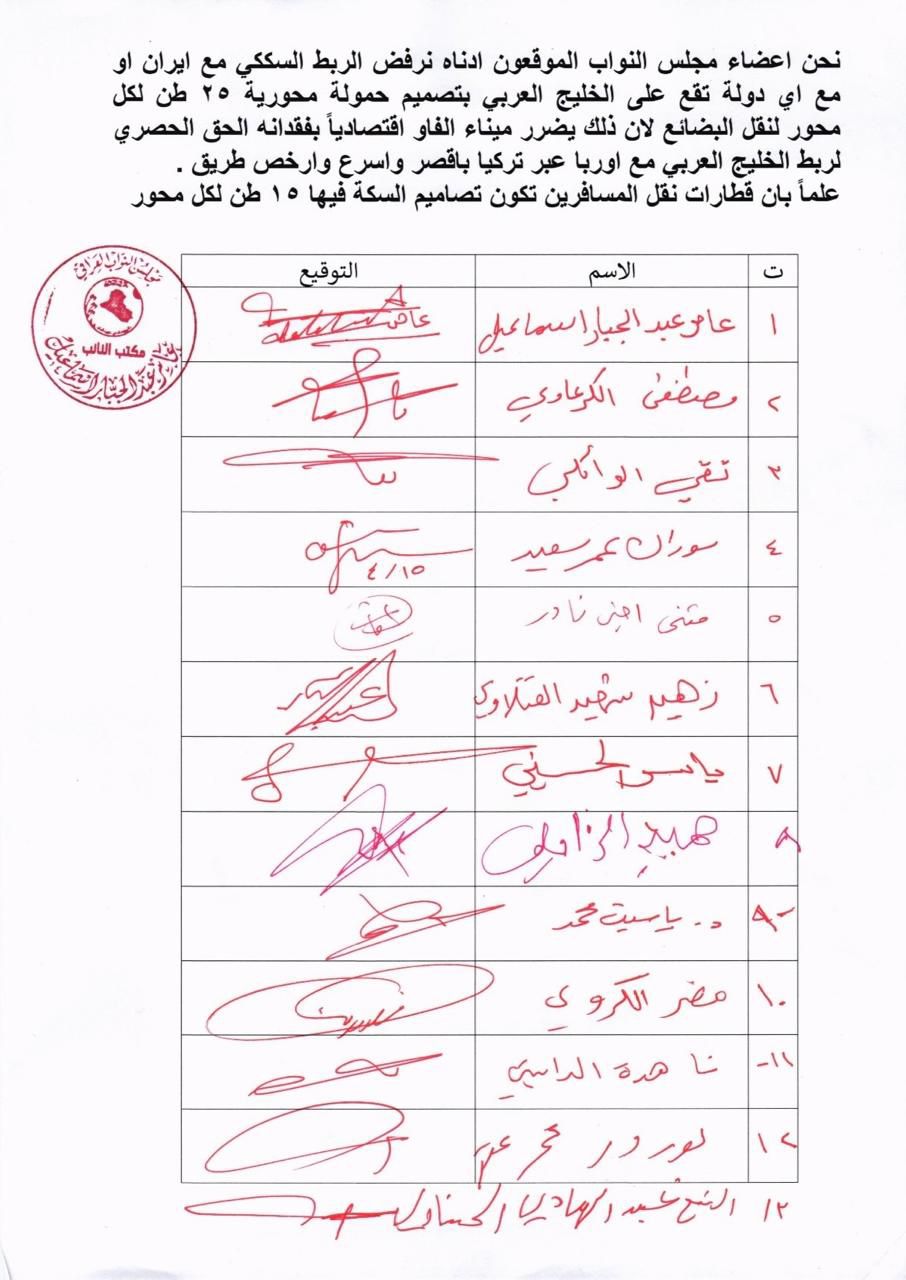 نحن اعضاء مجلس النواب الموقعون ادناه نرفض الربط السككي مع ايران او
مع اي دولة تقع على الخليج العربي بتصميم حمولة محورية ٢٥ طن لكل
محور لنقل البضائع لان ذلك يضرر ميناء الفاو اقتصادياً بفقدانه الحق الحصري
لربط الخليج العربي مع اوربا عبر تركيا باقصر واسرع وارخص طريق .
علماً بان قطارات نقل المسافرين تكون تصاميم السكة فيها ١٥ طن لكل محور
مجلس النواب العراقي
مكتب النائب
عامر عبد الجبار اسماعيل
ت الاسم التوقيع
١ عامر عبد الجبار اسماعيل
٢ مصطفى الكرعاوي
٣ تقي الوائلي
٤ سوران عمر سعيد ٤/١٥
٥ مثنى امين نادر
٦ زهير شهيد الفتلاوي
٧ ياسر الحسيني
٨
٩- د. ياسين محمد
١٠ مضر الكروي
١١- ناهدة
١٢
١٣ عبد الهادي الحسناوي